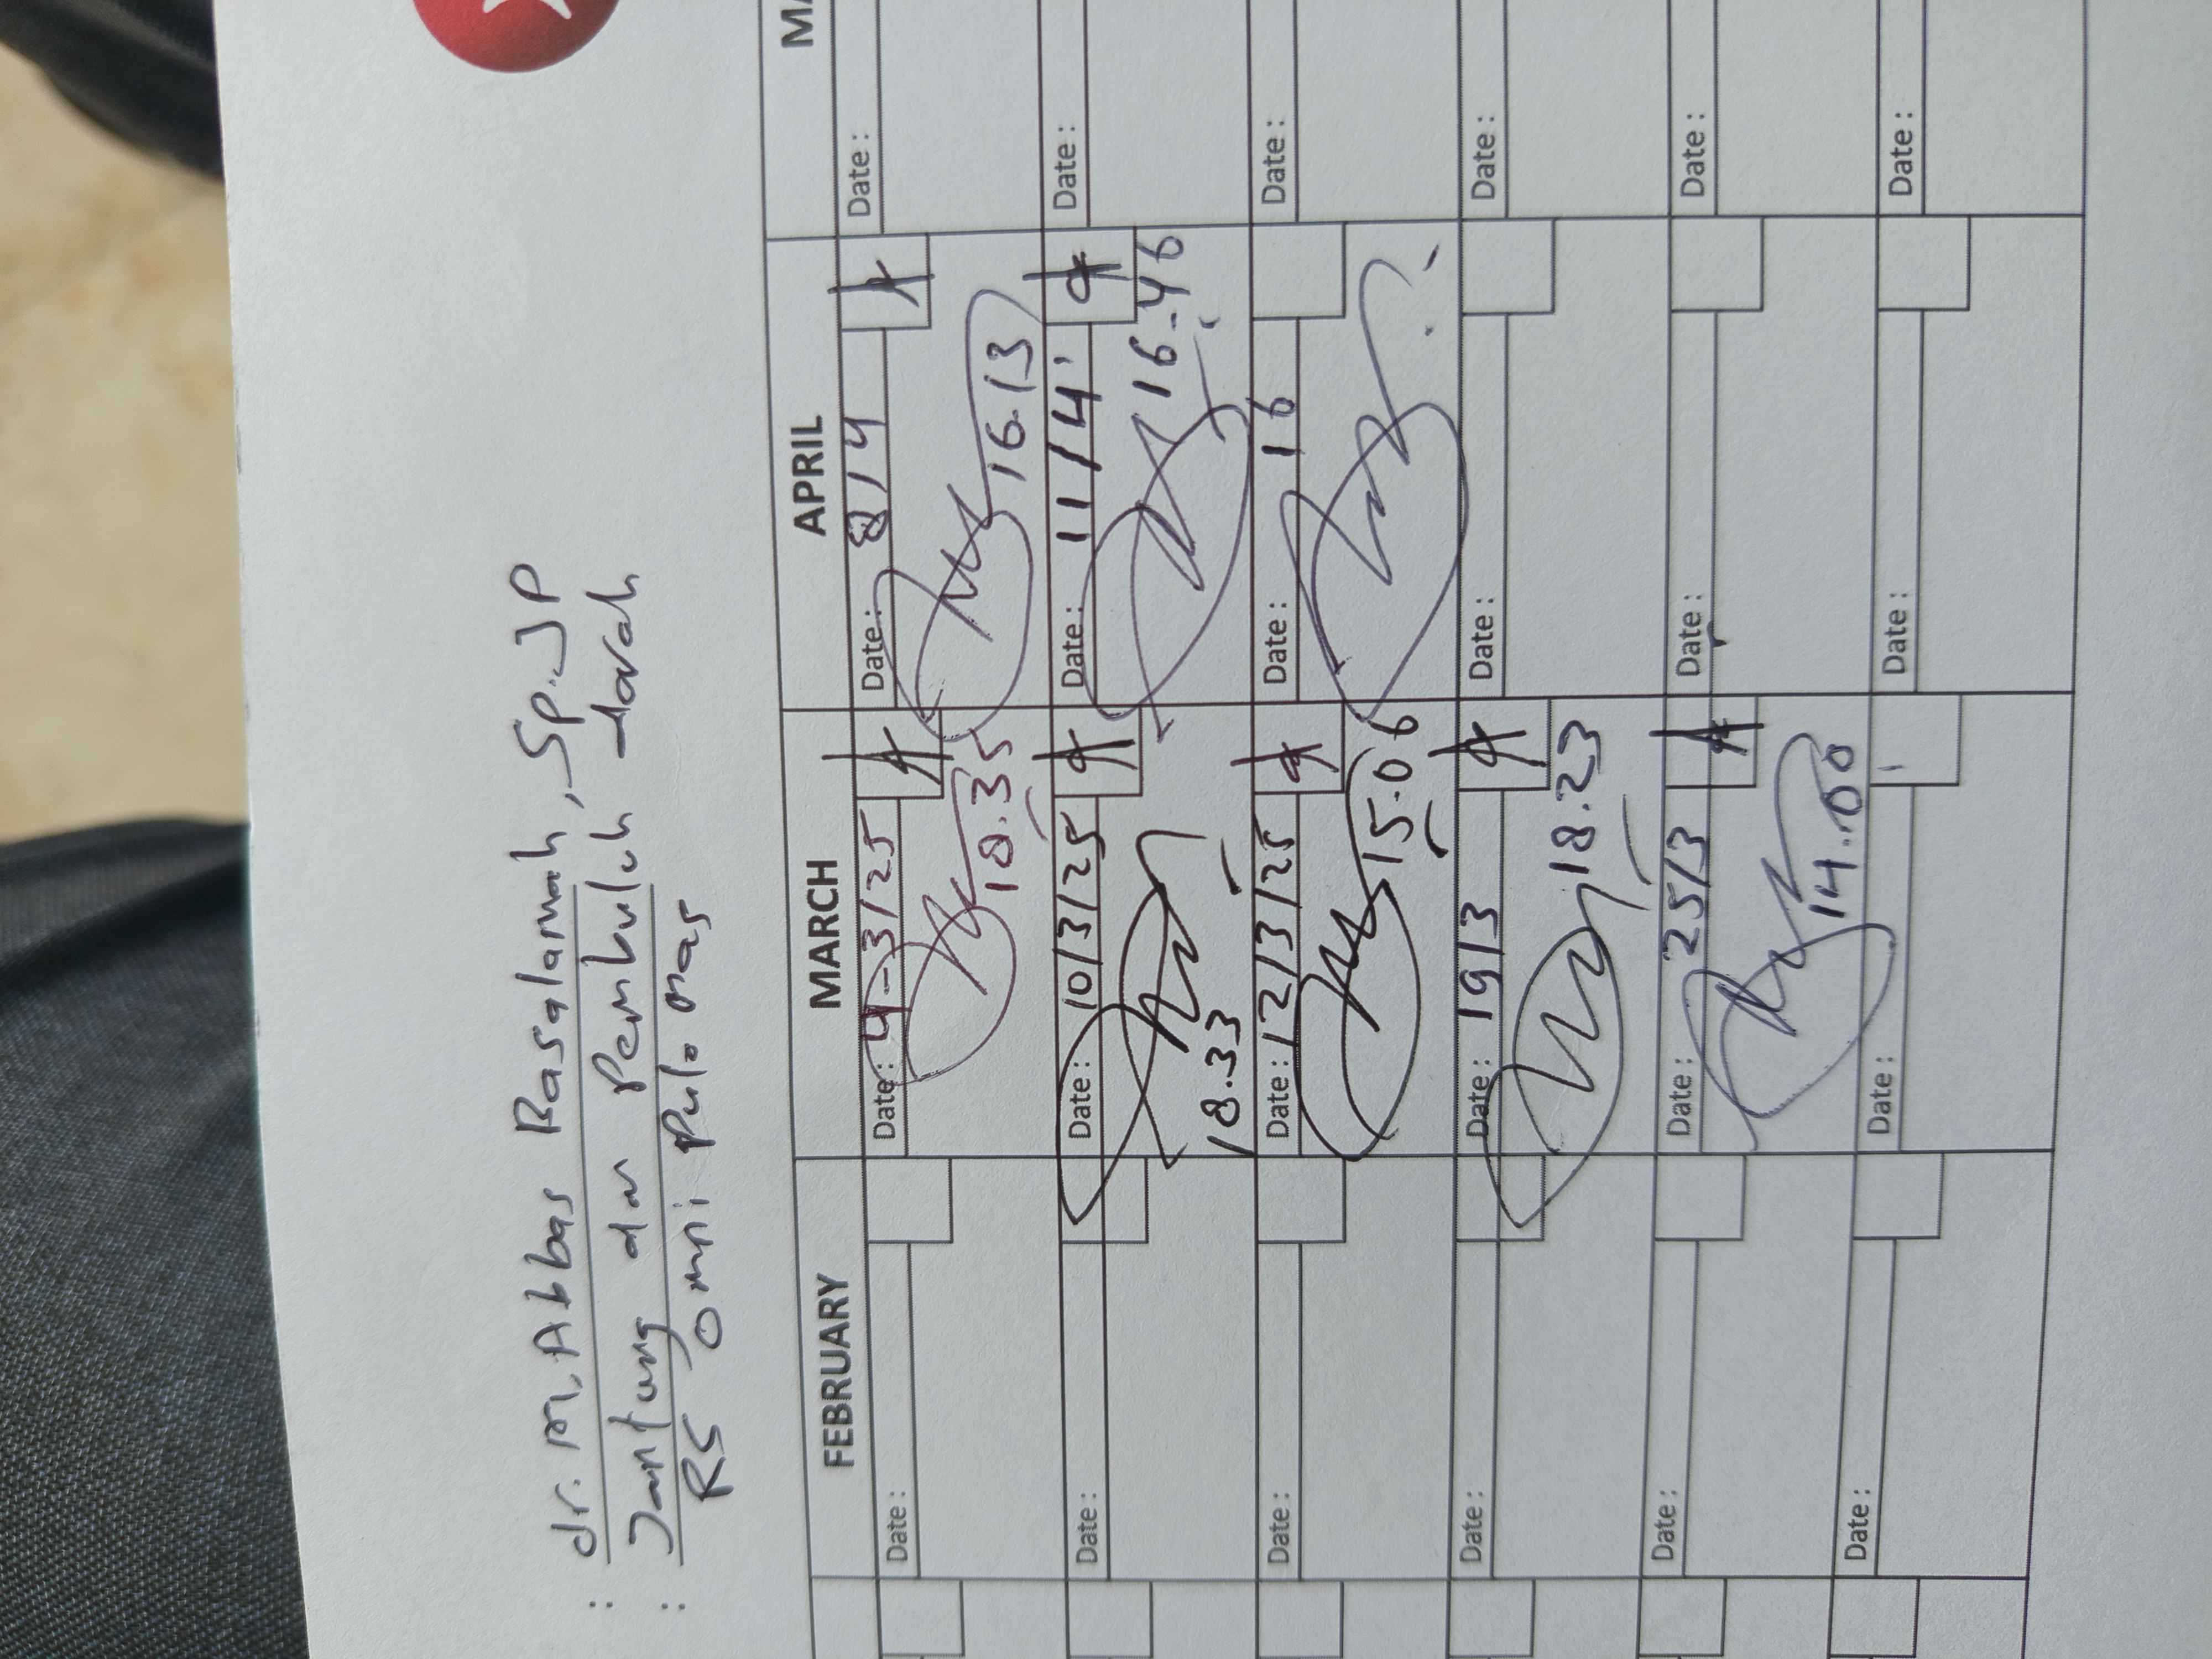 : dr. M. Abbas Basalamah, Sp.JP
: Jantung dan Pembuluh darah
RS Omni Pulo mas
FEBRUARY MARCH APRIL
Date : Date : 4-3/25 Date : 8/4 Date :
10.35 16.13
Date : Date : 10/3/25 Date : 11/4 Date :
18.33 16-46
Date : Date : 12/3/25 Date : 16 Date :
15.06
Date : Date : 19/3 Date : Date :
18.23
Date : Date : 25/3 Date : Date :
14.00
Date : Date : Date : Date :